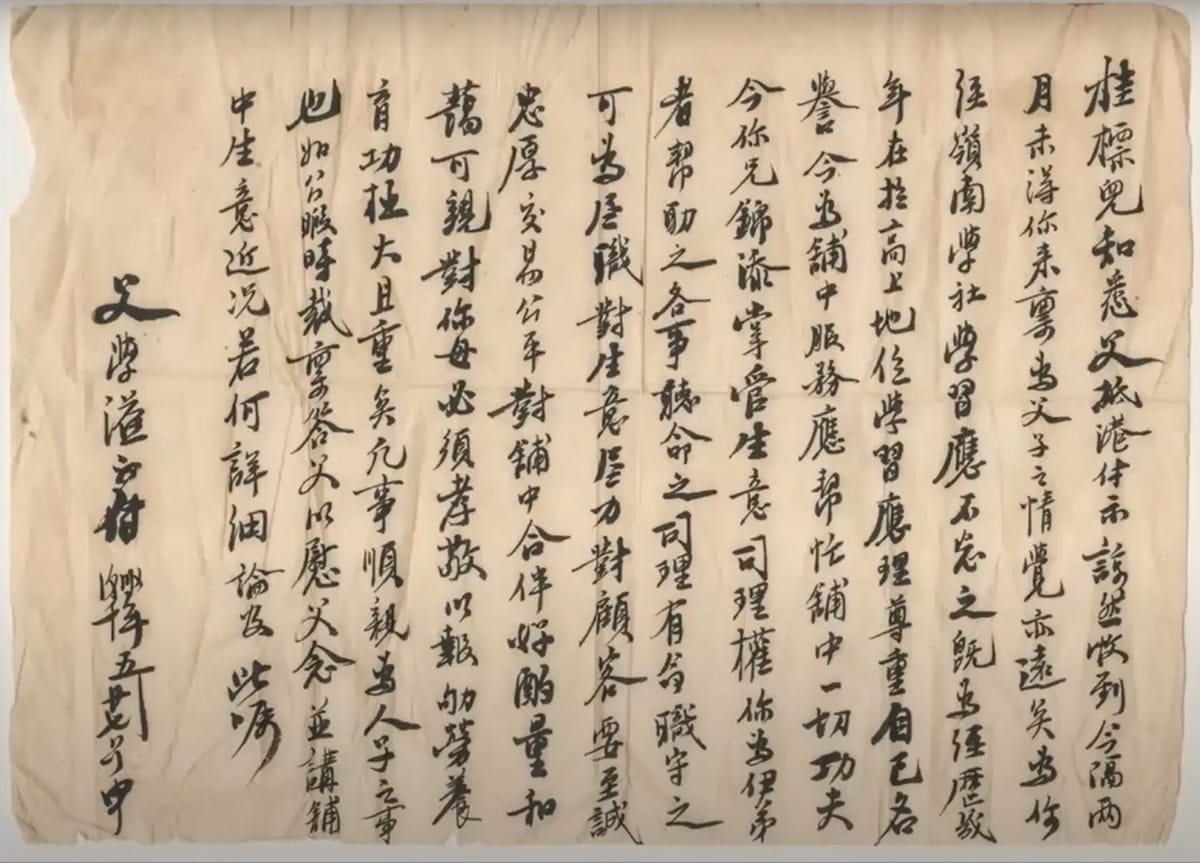 桂標兒知悉父抵港付示諒然收到今隔兩
月未得你來稟為父子之情覺亦遠矣為你
經嶺南學社學習應不忘之既為經歷幾
年在於高上地位學習應理尊重自己名
譽今為舖中服務應幫忙舖中一切功夫
今你兄錦添掌管生意司理權你為伊弟
者幫助之各事聽命之司理有命職守之
可為盡職對生意盡力對顧客要至誠
忠厚交易公平對舖中合伴好酌量和
藹可親對你母必須孝敬以報劬勞養
育功極大且重矣凡事順親為人子之事
也如公暇時裁稟答父以慰父念並講舖
中生意近况若何詳細論及此囑
父學溢 五廿七 申